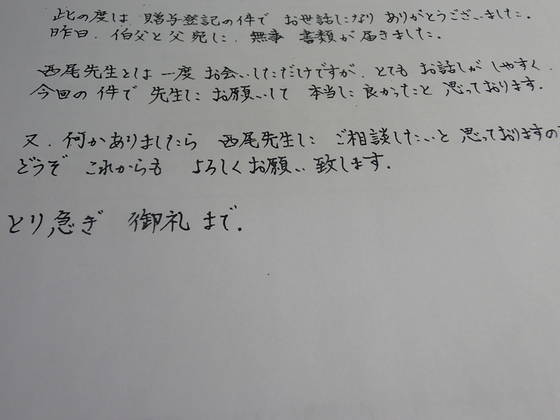 此の度は 贈与登記の件で お世話になり ありがとうございました.
昨日. 伯父と父宛に. 無事 書類が届きました.
西尾先生とは一度 お会いしただけですが. とても お話しが しやすく.
今回の件で 先生に お願いして 本当に 良かったと 思っております.
又. 何かありましたら 西尾先生に ご相談したいと 思っておりますので
どうぞ これからも よろしくお願い 致します.
とり急ぎ 御礼 まで.